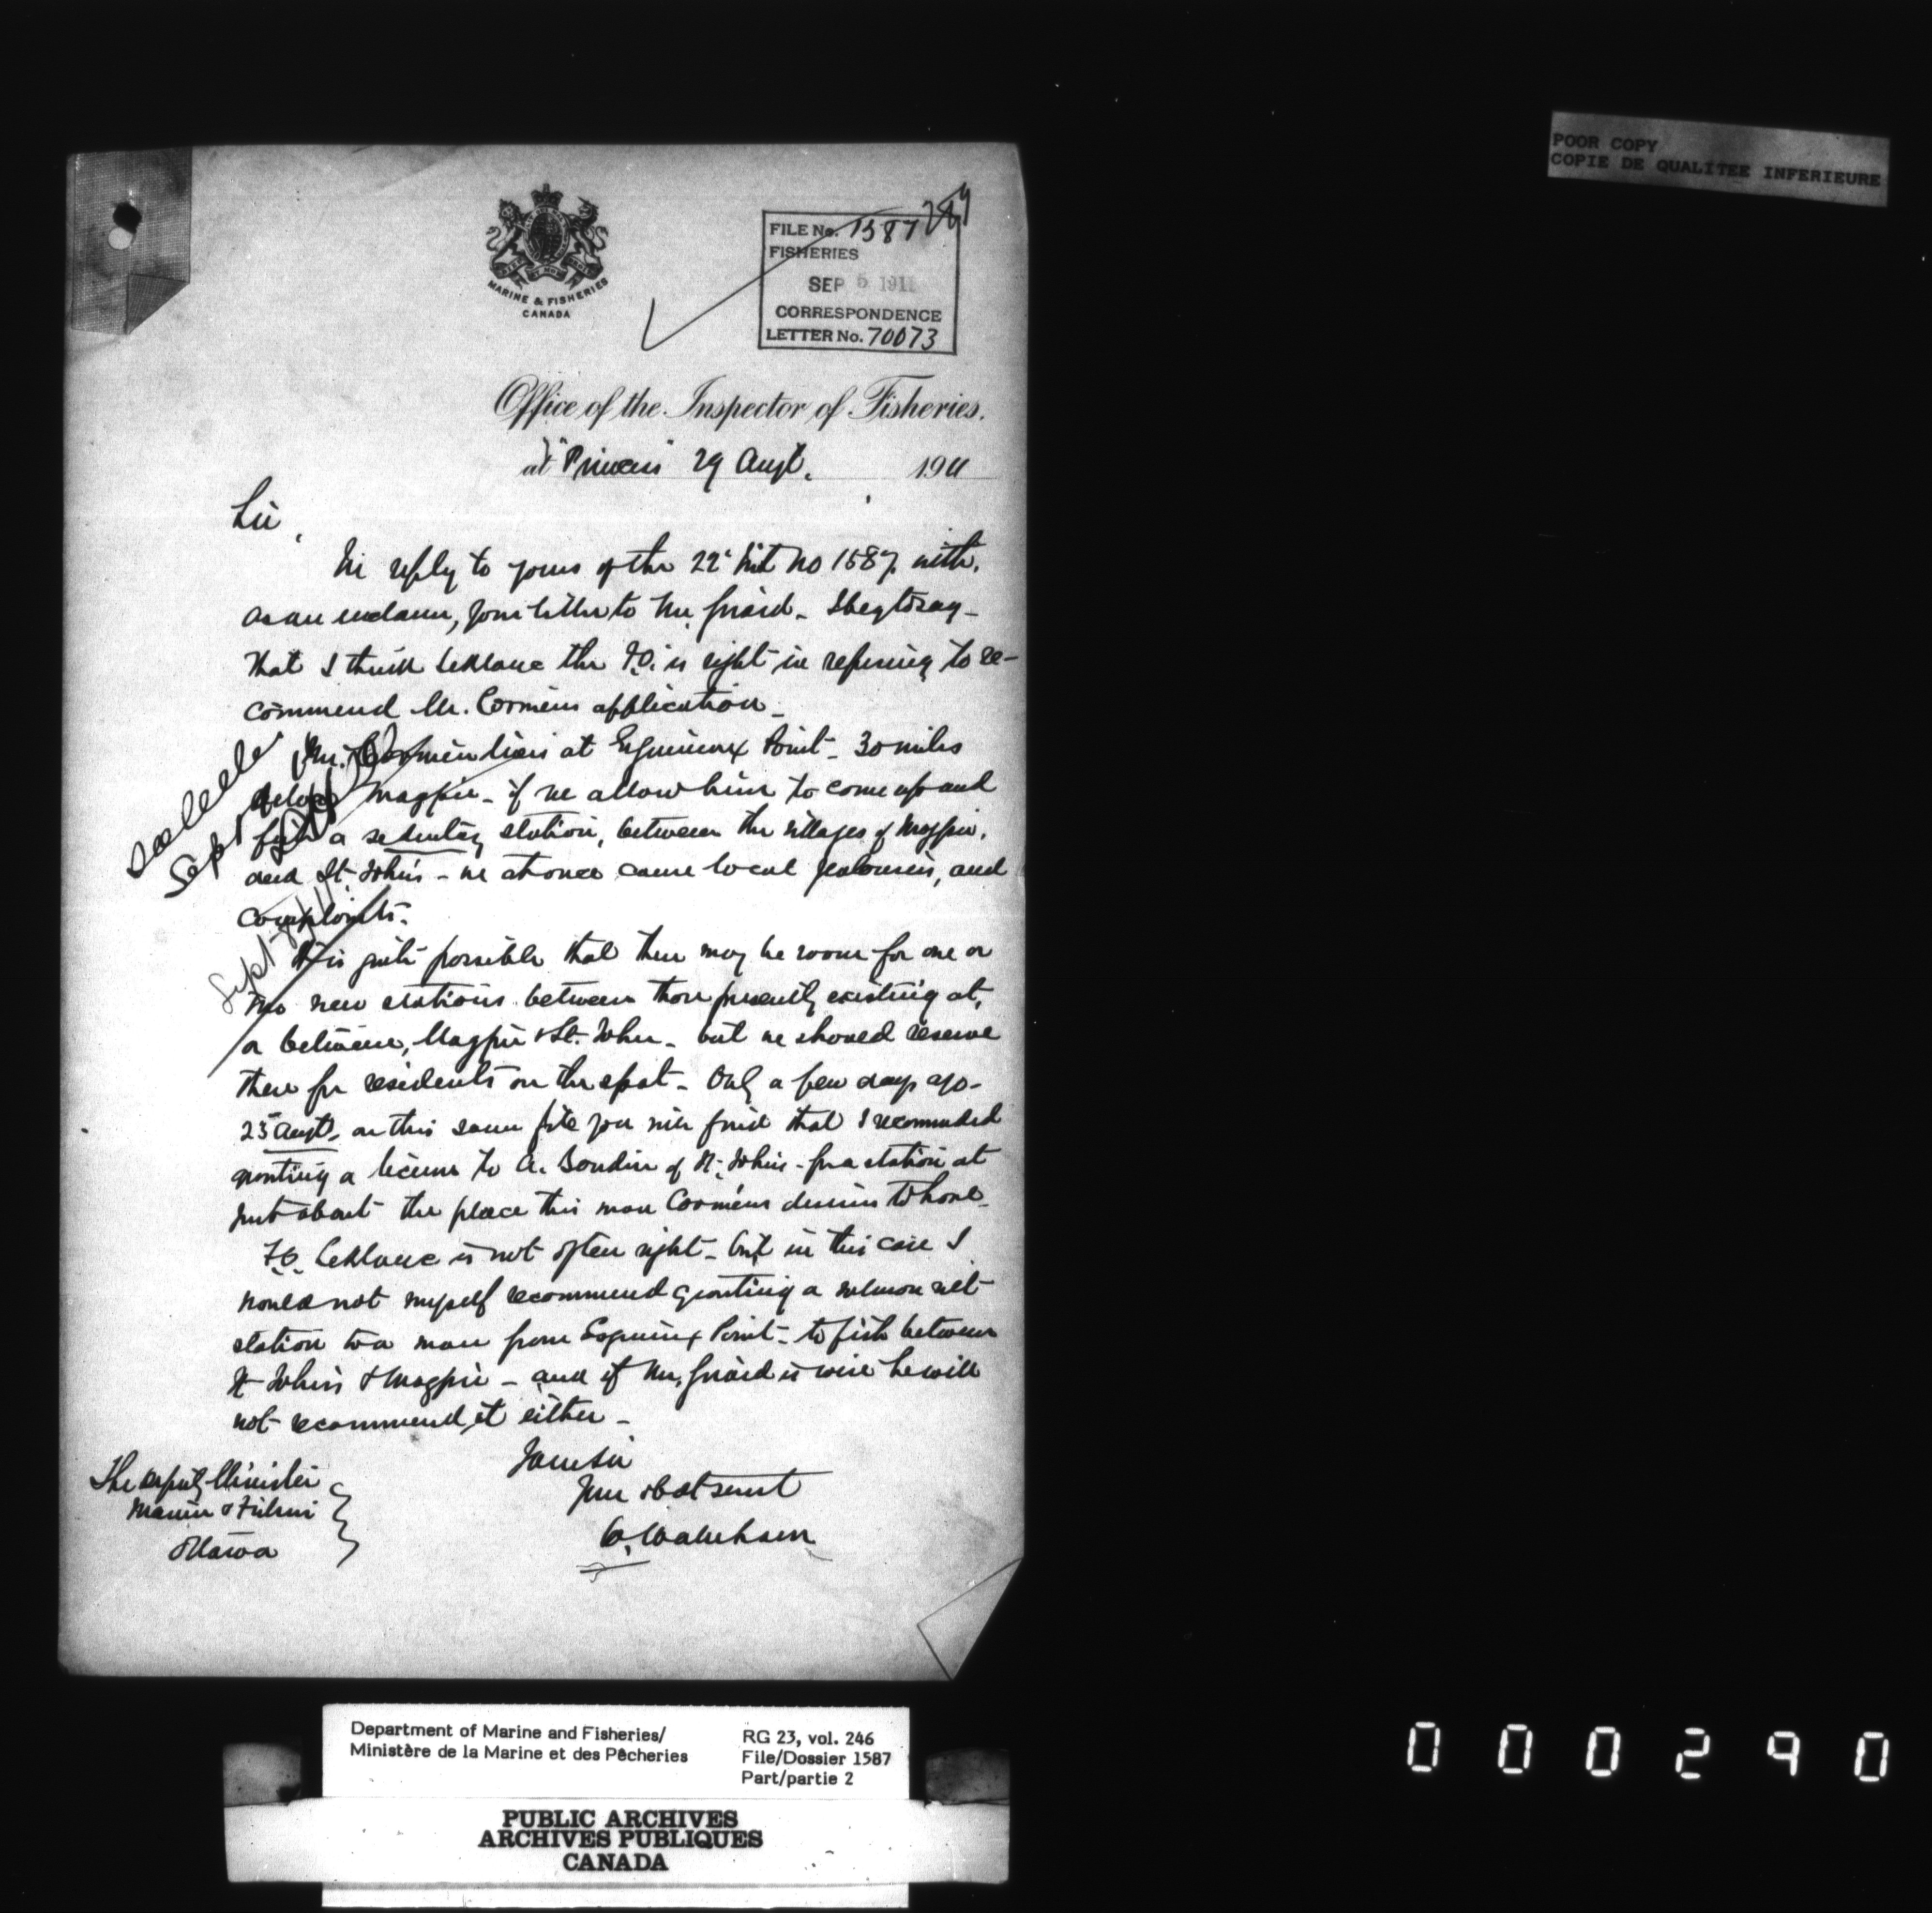 POOR COPY
COPIE DE QUALITEE INFERIEURE
MARINE & FISHERIES
CANADA
FILE No. 1587
FISHERIES
SEP 5 1911
CORRESPONDENCE
LETTER No. 70073
Office of the Inspector of Fisheries.
at "Princess" 29 Augt. 1911
Sir,
In reply to yours of the 22d Inst No 1587. with,
as an enclosure, your letter to Mr. Girard - I beg to say -
that I think LeBlanc the F.O. is right in refusing to re-
commend Mr. Cormiers application -
Mr. Cormier lives at Esquimaux Point - 30 miles
below Magpie - if we allow him to come up and
fish a sedentary station, between the villages of Magpie,
and St. Johns - we at once cause local jealousies, and
complaints.
It is quite possible that there may be room for one or
two new stations between those presently existing at,
or between, Magpie & St. John - but we should reserve
these for residents on the spot - Only a few days ago -
25 Augt. on this same file you will find that I recommended
granting a license to A. Boudin of St. Johns - for a station at
just about the place this man Cormiers desires to have -
F.O. LeBlanc is not often right - but in this case I
would not myself recommend granting a salmon net
station to a man from Esquimx Point - to fish between
St Johns & Magpie - and if Mr. Girard is wise he will
not recommend it either -
Sept
Sept 8/11
I am Sir
Your obdt servt
W. Wakeham
The Deputy Minister
Marine & Fisheries
Ottawa
Department of Marine and Fisheries/
Ministère de la Marine et des Pêcheries
RG 23, vol. 246
File/Dossier 1587
Part/partie 2
PUBLIC ARCHIVES
ARCHIVES PUBLIQUES
CANADA
000290